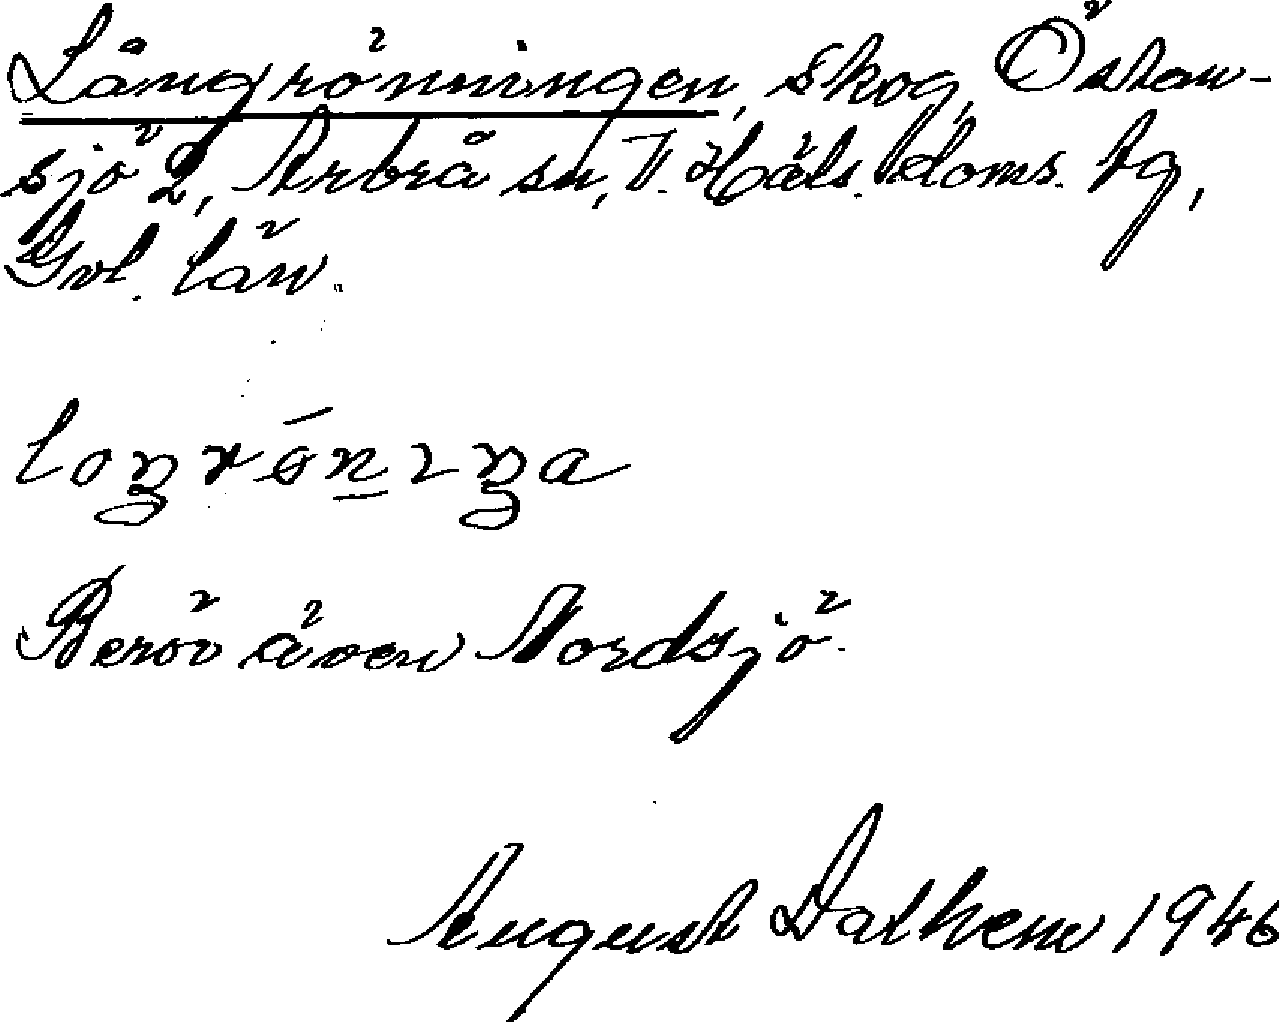 Långrönningen, skog, Östan-
sjö 2, Arbrå sn, V. Häls. doms. tg,
Gvl. län.
loŋrǿn̲ıŋa
Berör även Nordsjö.
August Dathem 1946